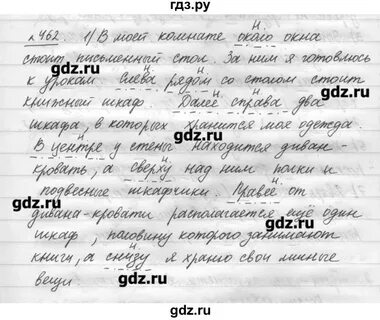 гдз.ру
№462 1) В моей комнате около окна
стоит письменный стол. За ним я готовлюсь
к урокам. Слева рядом со столом стоит
книжный шкаф. Далее справа два
шкафа, в которых хранится моя одежда.
В центре у стены находится диван-
кровать, а сверху над ним полки и
подвесные шкафчики. Правее от
дивана-кровати располагается ещё один
шкаф, половину которого занимают
книги, а снизу я храню свои личные
вещи.
gdz.ru
gdz.ru
gdz.ru
gdz.ru
gdz.ru
gdz.ru
gdz.ru
gdz.ru
gdz.ru
gdz.ru